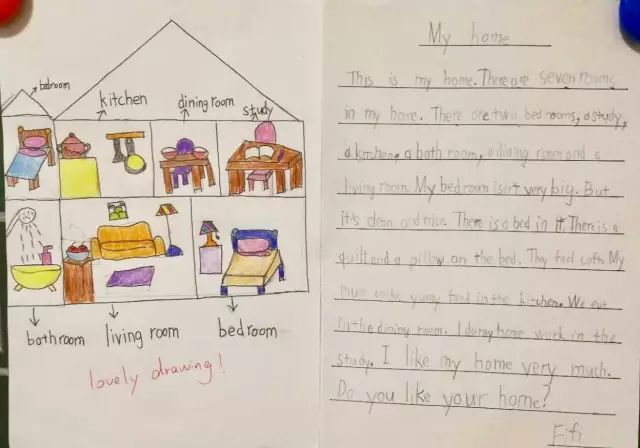 bedroom
kitchen
dining room
study
bathroom
living room
bedroom
lovely drawing!
My home
This is my home. There are seven rooms
in my home. There are two bedrooms, a study,
a kitchen, a bathroom, a dining room and a
living room. My bedroom isn't very big. But
it's clean and nice. There is a bed in it. There is a
quilt and a pillow on the bed. They feel soft. My
mum cooks yumy food in the kitchen. We eat
in the dining room. I do my home work in the
study. I like my home very much.
Do you like your home?
Fifi